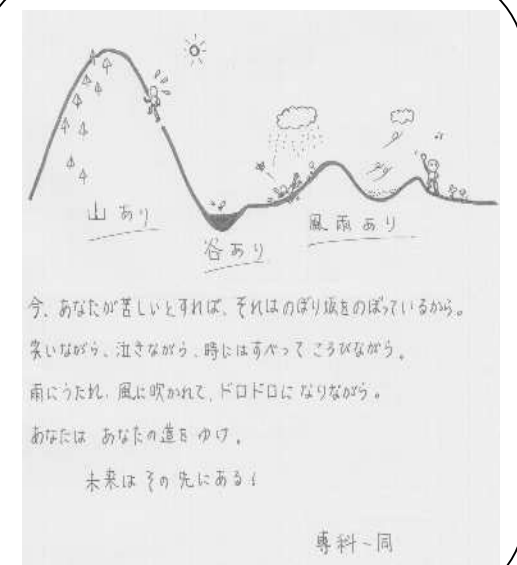 山あり
谷あり
風雨あり
今、あなたが苦しいとすれば、それはのぼり坂をのぼっているから。
笑いながら、泣きながら、時にはすべって ころびながら。
雨にうたれ、風に吹かれて、ドロドロに なりながら。
あなたは あなたの道を ゆけ。
未来は その 先にある!
専科一同